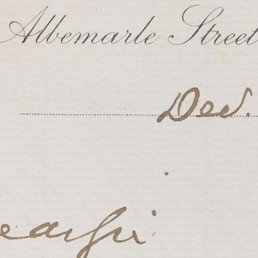 Albemarle Street
Dec.